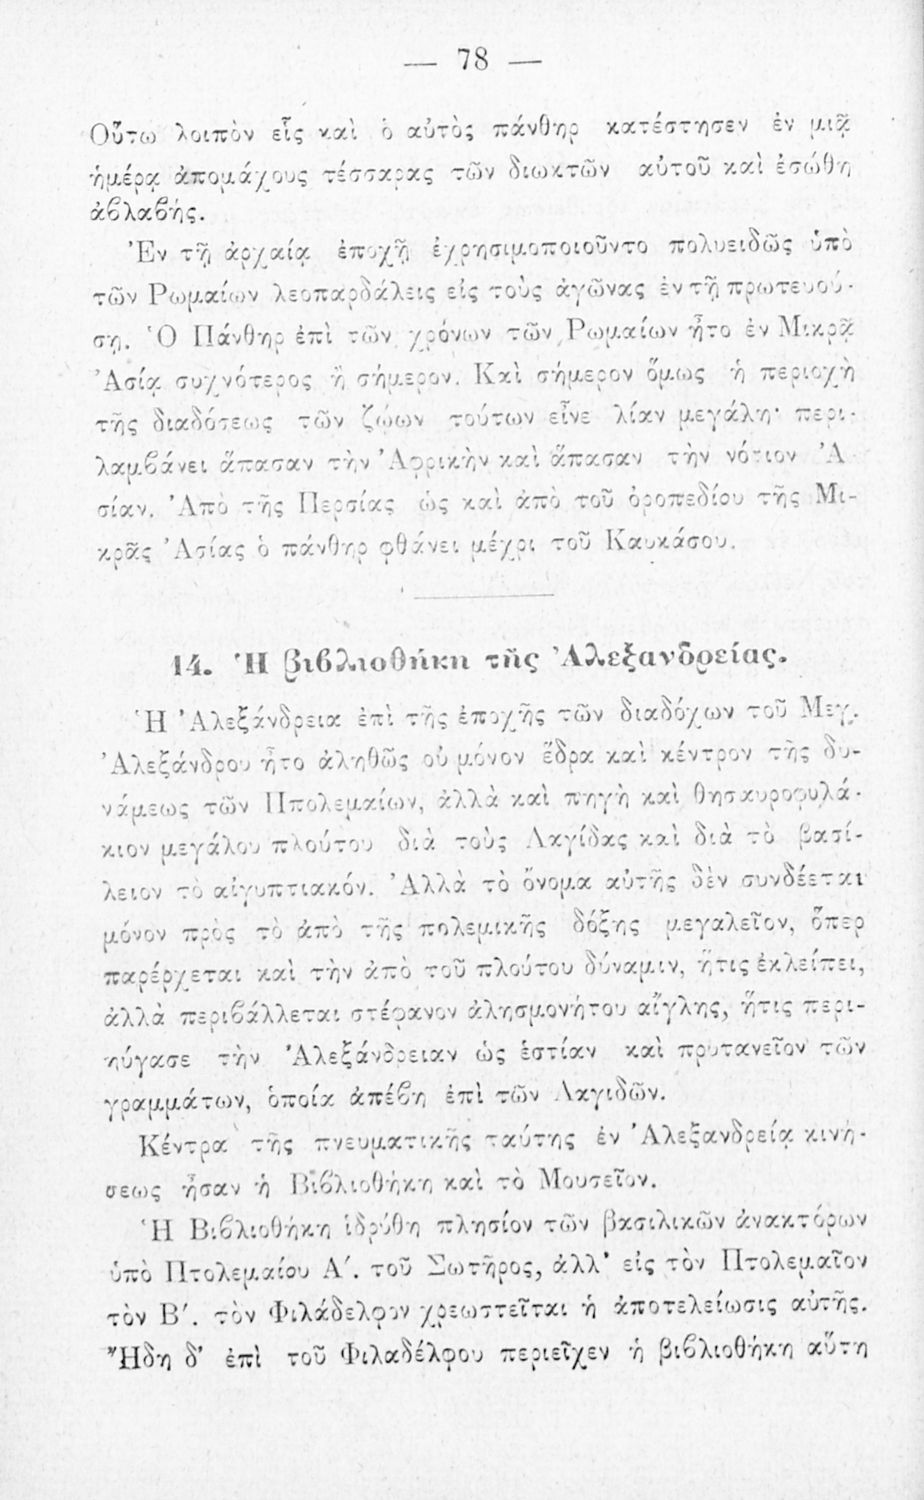 — 78 —
Οὕτω λοιπὸν εἷς καὶ ὁ αὐτὸς πάνθηρ κατέστησεν ἐν μιᾷ
ἡμέρᾳ ἀπομάχους τέσσαρας τῶν διωκτῶν αὐτοῦ καὶ ἐσώθη
ἀβλαβής.
Ἐν τῇ ἀρχαίᾳ ἐποχῇ ἐχρησιμοποιοῦντο πολυειδῶς ὑπὸ
τῶν Ρωμαίων λεοπαρδάλεις εἰς τοὺς ἀγῶνας ἐν τῇ πρωτευού-
σῃ. Ὁ Πάνθηρ ἐπὶ τῶν χρόνων τῶν Ρωμαίων ἦτο ἐν Μικρᾷ
Ἀσίᾳ συχνότερος ἢ σήμερον. Καὶ σήμερον ὅμως ἡ περιοχὴ
τῆς διαδόσεως τῶν ζώων τούτων εἶνε λίαν μεγάλη· περι-
λαμβάνει ἅπασαν τὴν Ἀφρικὴν καὶ ἅπασαν τὴν νότιον Ἀ
σίαν. Ἀπὸ τῆς Περσίας ὡς καὶ ἀπὸ τοῦ ὀροπεδίου τῆς Μι-
κρᾶς Ἀσίας ὁ πάνθηρ φθάνει μέχρι τοῦ Καυκάσου.
14. Ἡ βιβλιοθήκη τῆς Ἀλεξανδρείας.
Ἡ Ἀλεξάνδρεια ἐπὶ τῆς ἐποχῆς τῶν διαδόχων τοῦ Μεγ.
Ἀλεξάνδρου ἦτο ἀληθῶς οὐ μόνον ἕδρα καὶ κέντρον τῆς δυ-
νάμεως τῶν Πτολεμαίων, ἀλλὰ καὶ πηγὴ καὶ θησαυροφυλά-
κιον μεγάλου πλούτου διὰ τοὺς Λαγίδας καὶ διὰ τὸ βασί-
λειον τὸ αἰγυπτιακόν. Ἀλλὰ τὸ ὄνομα αὐτῆς δὲν συνδέεται
μόνον πρὸς τὸ ἀπὸ τῆς πολεμικῆς δόξης μεγαλεῖον, ὅπερ
παρέρχεται καὶ τὴν ἀπὸ τοῦ πλούτου δύναμιν, ἥτις ἐκλείπει,
ἀλλὰ περιβάλλεται στέφανον ἀλησμονήτου αἴγλης, ἥτις περι-
ηύγασε τὴν Ἀλεξάνδρειαν ὡς ἑστίαν καὶ πρυτανεῖον τῶν
γραμμάτων, ὁποία ἀπέβη ἐπὶ τῶν Λαγιδῶν.
Κέντρα τῆς πνευματικῆς ταύτης ἐν Ἀλεξανδρείᾳ κινή-
σεως ἦσαν ἡ Βιβλιοθήκη καὶ τὸ Μουσεῖον.
Ἡ Βιβλιοθήκη ἱδρύθη πλησίον τῶν βασιλικῶν ἀνακτόρων
ὑπὸ Πτολεμαίου Α΄. τοῦ Σωτῆρος, ἀλλ' εἰς τὸν Πτολεμαῖον
τὸν Β΄. τὸν Φιλάδελφον χρεωστεῖται ἡ ἀποτελείωσις αὐτῆς.
Ἤδη δ' ἐπὶ τοῦ Φιλαδέλφου περιεῖχεν ἡ βιβλιοθήκη αὕτη